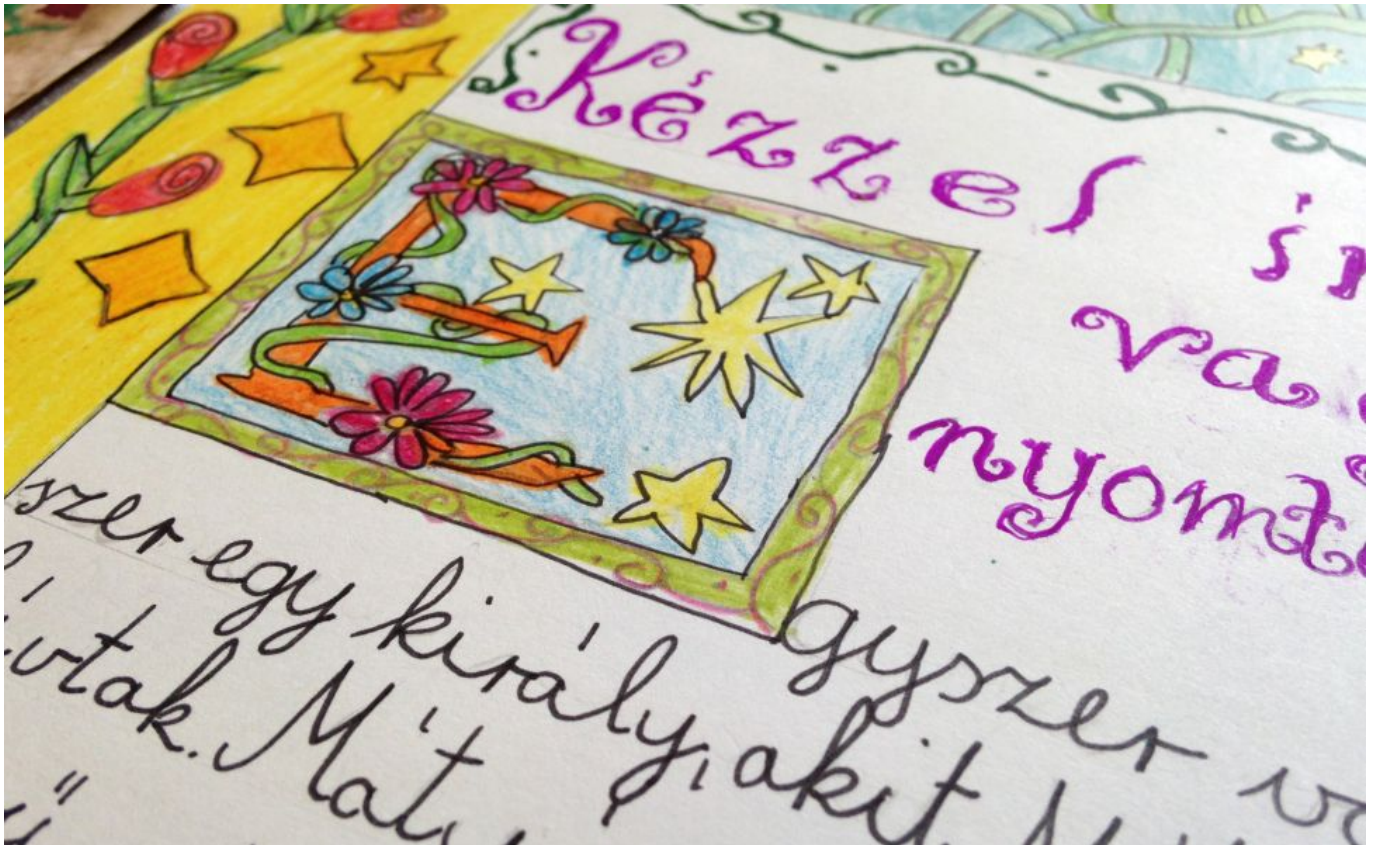 Kézzel ír
va
nyomt
E gyszer vo
szer egy király, akit M
ívtak. Máty